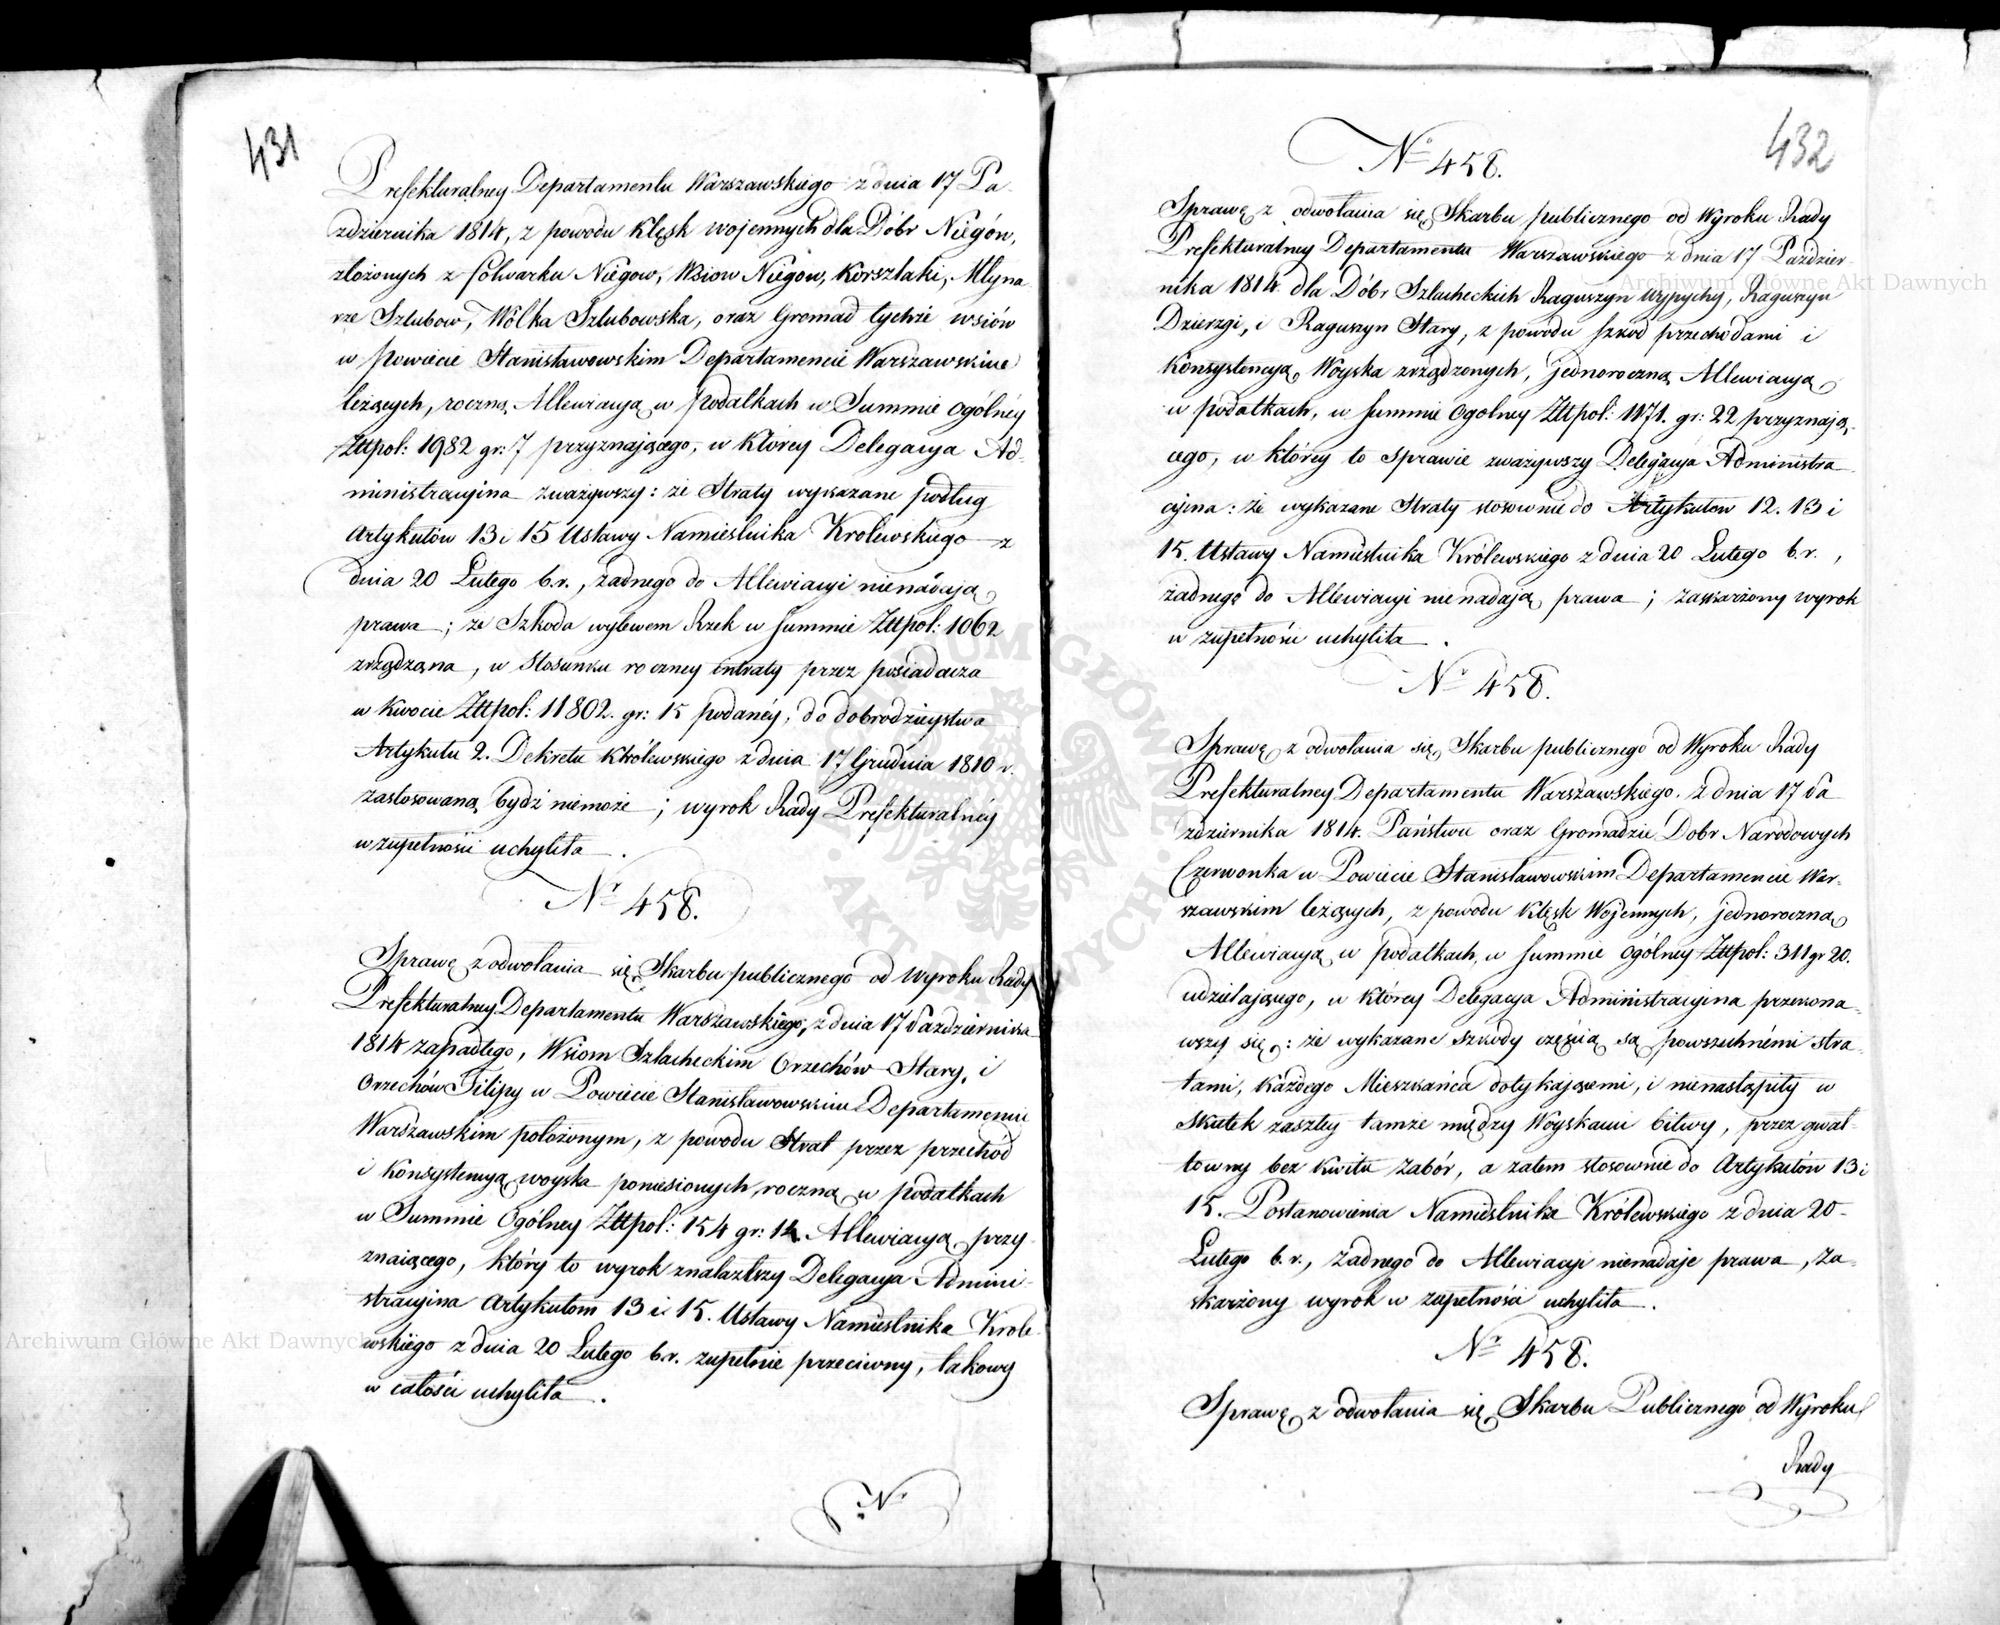 431
Prefekturalney Departamentu Warszawskiego z dnia 17 Pa-
zdziernika 1814, z powodu Klęsk wojennych dla Dóbr Niegów,
złożonych z folwarku Niegow, Wsiow Niegow, Korszlaki, Młyna
rze Szlubow, Wólka Szlubowska, oraz Gromad tychże wsiów
w Powiecie Stanisławowskim Departamencie Warszawskim
leżących, roczną Allewiacyą w podatkach w Summie ogólnéy
Złtpol: 1982 gr: 7 przyznającego, w którey Delegacya Ad-
ministracyina zważywszy: że Straty wykazane podług
Artykułów 13 i 15 Ustawy Namiestnika Krolewskiego z
dnia 20 Lutego b.r., żadnego do Allewiacyi nienadają
prawa; ze Szkoda wylewem Rzek w summie Złtpol: 1062
zrządzona, w stosunku roczney intraty przez posiadacza
w kwocie Złtpol: 11802. gr: 15 podanéy, do dobrodzieystwa
Artykułu 2. Dekretu Królewskiego z dnia 17 Grudnia 1810 r.
zastosowaną bydź niemoże; wyrok Rady Prefekturalnéy
w zupełności uchyliła.
Nr 458.
Sprawę z odwołania się Skarbu publicznego od Wyroku Rady
Prefekturalney Departamentu Warszawskiego, z dnia 17 Pazdziernika
1814 zapadłego, Wsiom Szlacheckim Orzechów Stary, i
Orzechów Filipy w Powiecie Stanisławowskim Departamencie
Warszawskim położonym, z powodu Strat przez przechód
i Konsystencyą woyska poniesionych, roczną w podatkach
w Summie Ogólney Złtpol: 154 gr: 14 Allewiacyą przy-
znaiącego, który to wyrok znalazłszy Delegacya Admini-
stracyina Artykułom 13 i 15. Ustawy Namiestnika Krole-
wskiego z dnia 20 Lutego b.r. zupełnie przeciwny, takowy
w całości uchyliła.
N.
432
No 458.
Sprawę z odwołania się Skarbu publicznego od Wyroku Rady
Prefekturalney Departamentu Warszawskiego z dnia 17 Paździer-
nika 1814. dla Dóbr Szlacheckich Raguszyn Wypychy, Raguszyn
Dzierzgi, i Raguszyn Stary, z powodu szkod przechodami i
Konsystencyą Woyska zrządzonych, jednoroczną Allewiacyą
w podatkach, w summie Ogolney Złtpol: 1171. gr: 22 przyznają-
cego, w którey to sprawie zważywszy Delegacya Administra-
cyina: że wykazane Straty stosownie do Artykułow 12. 13 i
15. Ustawy Namiestnika Królewskiego z dnia 20 Lutego b.r.,
żadnego do Allewiacyi nienadają prawa; zaskarżony wyrok
w zupełności uchyliła.
Nr 458.
Sprawę z odwołania się Skarbu publicznego od Wyroku Rady
Prefekturalney Departamentu Warszawskiego. z dnia 17 Pa
zdziernika 1814. Państwu oraz Gromadzie Dobr Narodowych
Czerwonka w Powiecie Stanisławowskim Departamencie War-
szawskim leżących, z powodu Klęsk Wojennych, jednoroczną
Allewiacyą w podatkach, w summie ogólney Złtpol: 311 gr 20.
udzielającego, w którey Delegacya Administracyina przekona-
wszy się: że wykazane szkody częścią są powszechnémi stra-
tami, każdego Mieszkańca dotykającemi, i nienastąpiły w
Skutek zaszłey tamże między Woyskami bitwy, przez gwał-
towny bez kwitu zabór, a zatem stosownie do Artykułów 13 i
15. Postanowienia Namiestnika Królewskiego z dnia 20
Lutego b.r., żadnego do Allewiacyi nienadaje prawa, za-
skarżony wyrok w zupełności uchyliła.
Nr 458.
Sprawę z odwołania się Skarbu Publicznego od Wyroku
Rady
Archiwum Główne Akt Dawnych
Archiwum Główne Akt Dawnych
ARCHIWUM GŁÓWNE · AKT DAWNYCH ·